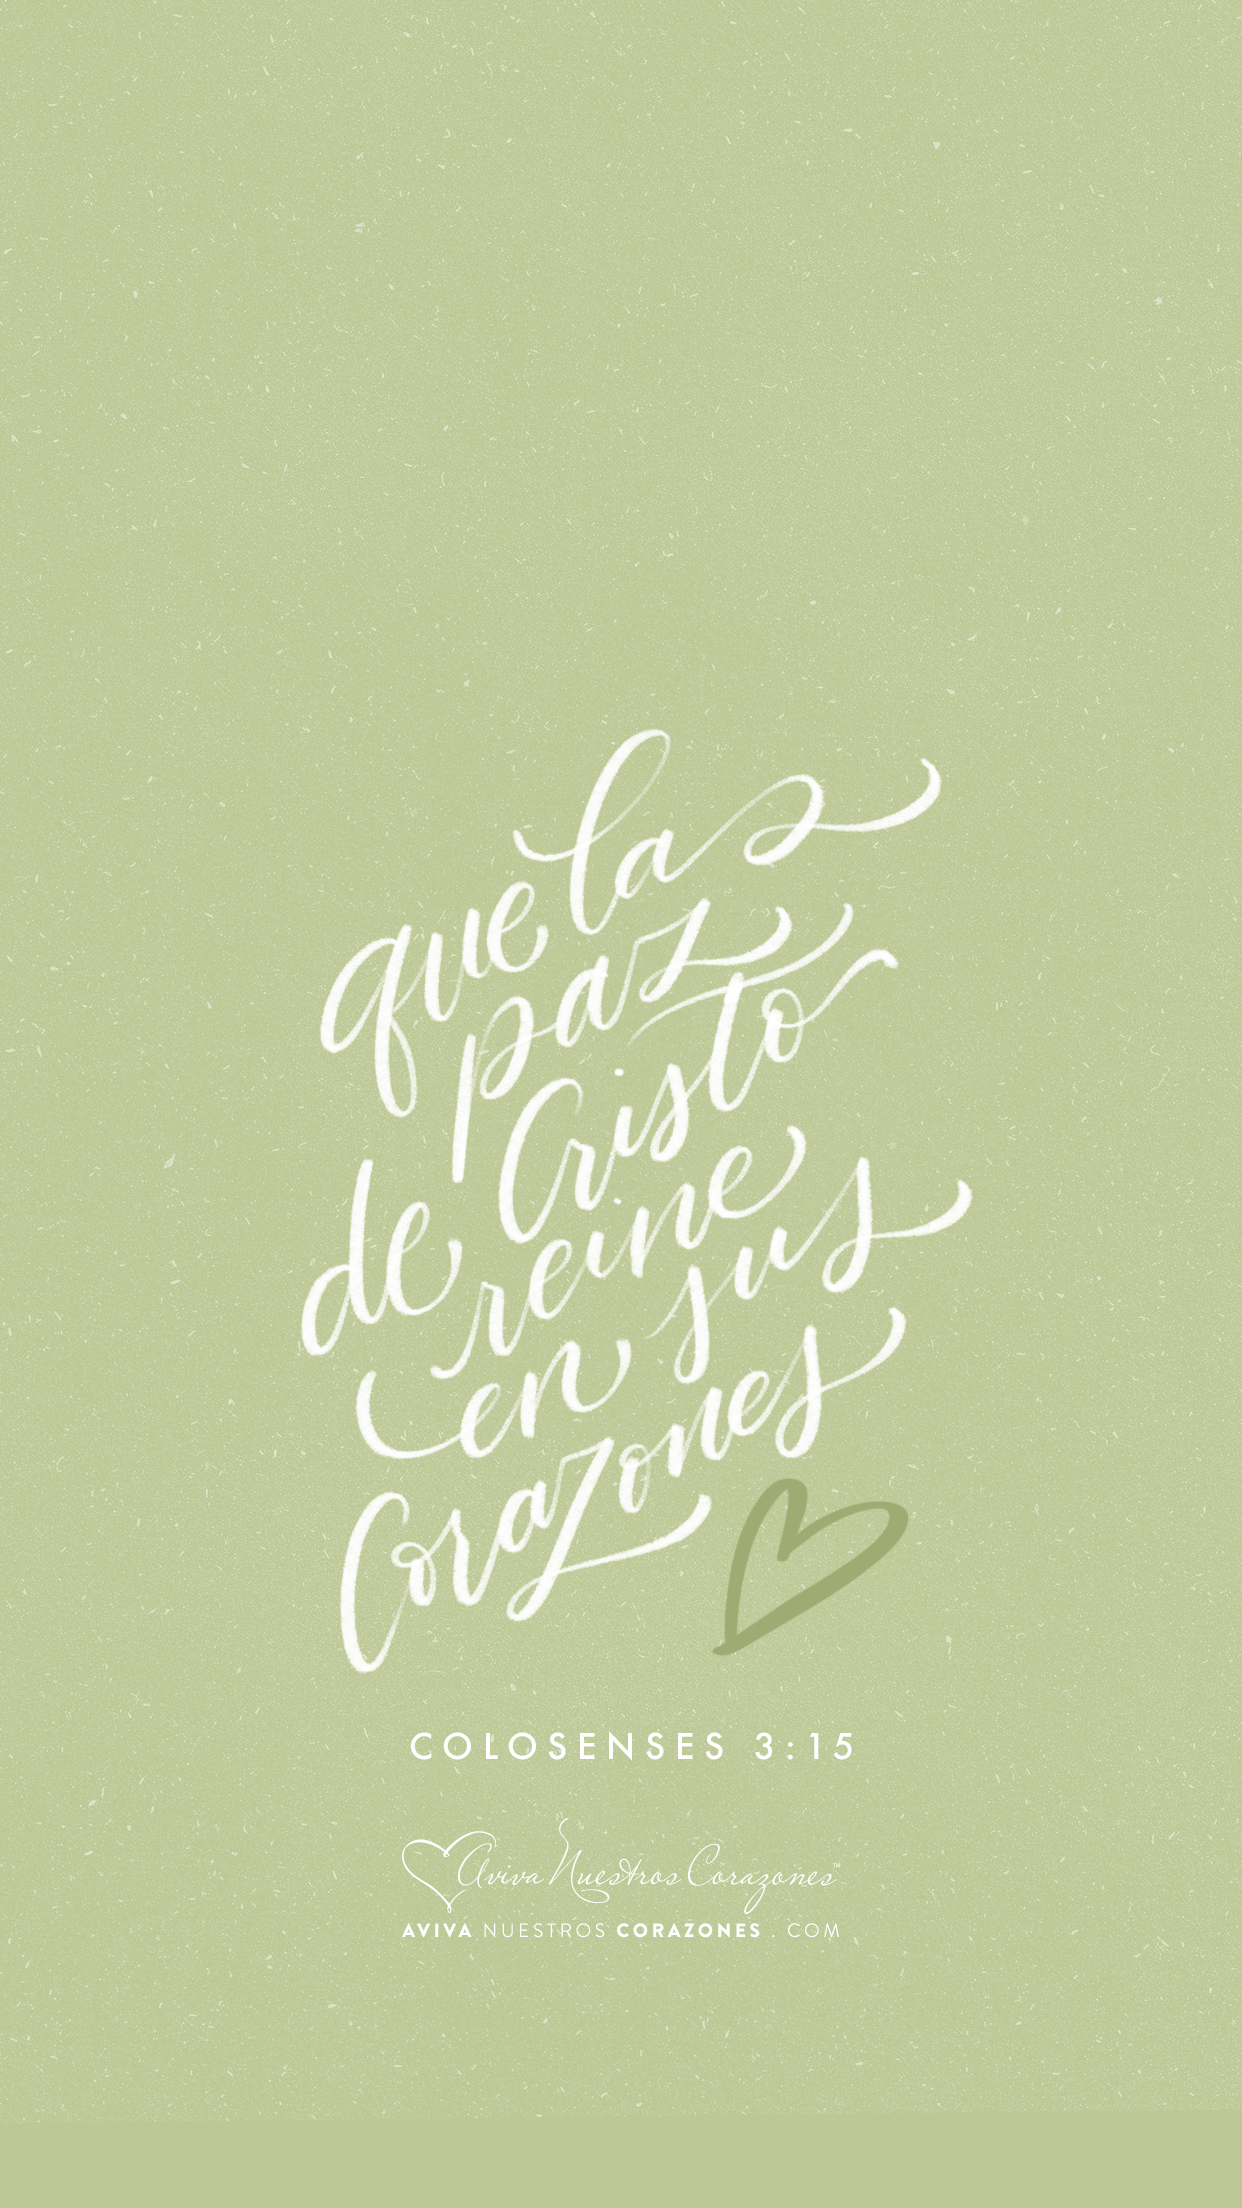 que la
paz
Cristo
de reine
en sus
Corazones
COLOSENSES 3:15
Aviva Nuestros Corazones™
AVIVA NUESTROS CORAZONES . COM